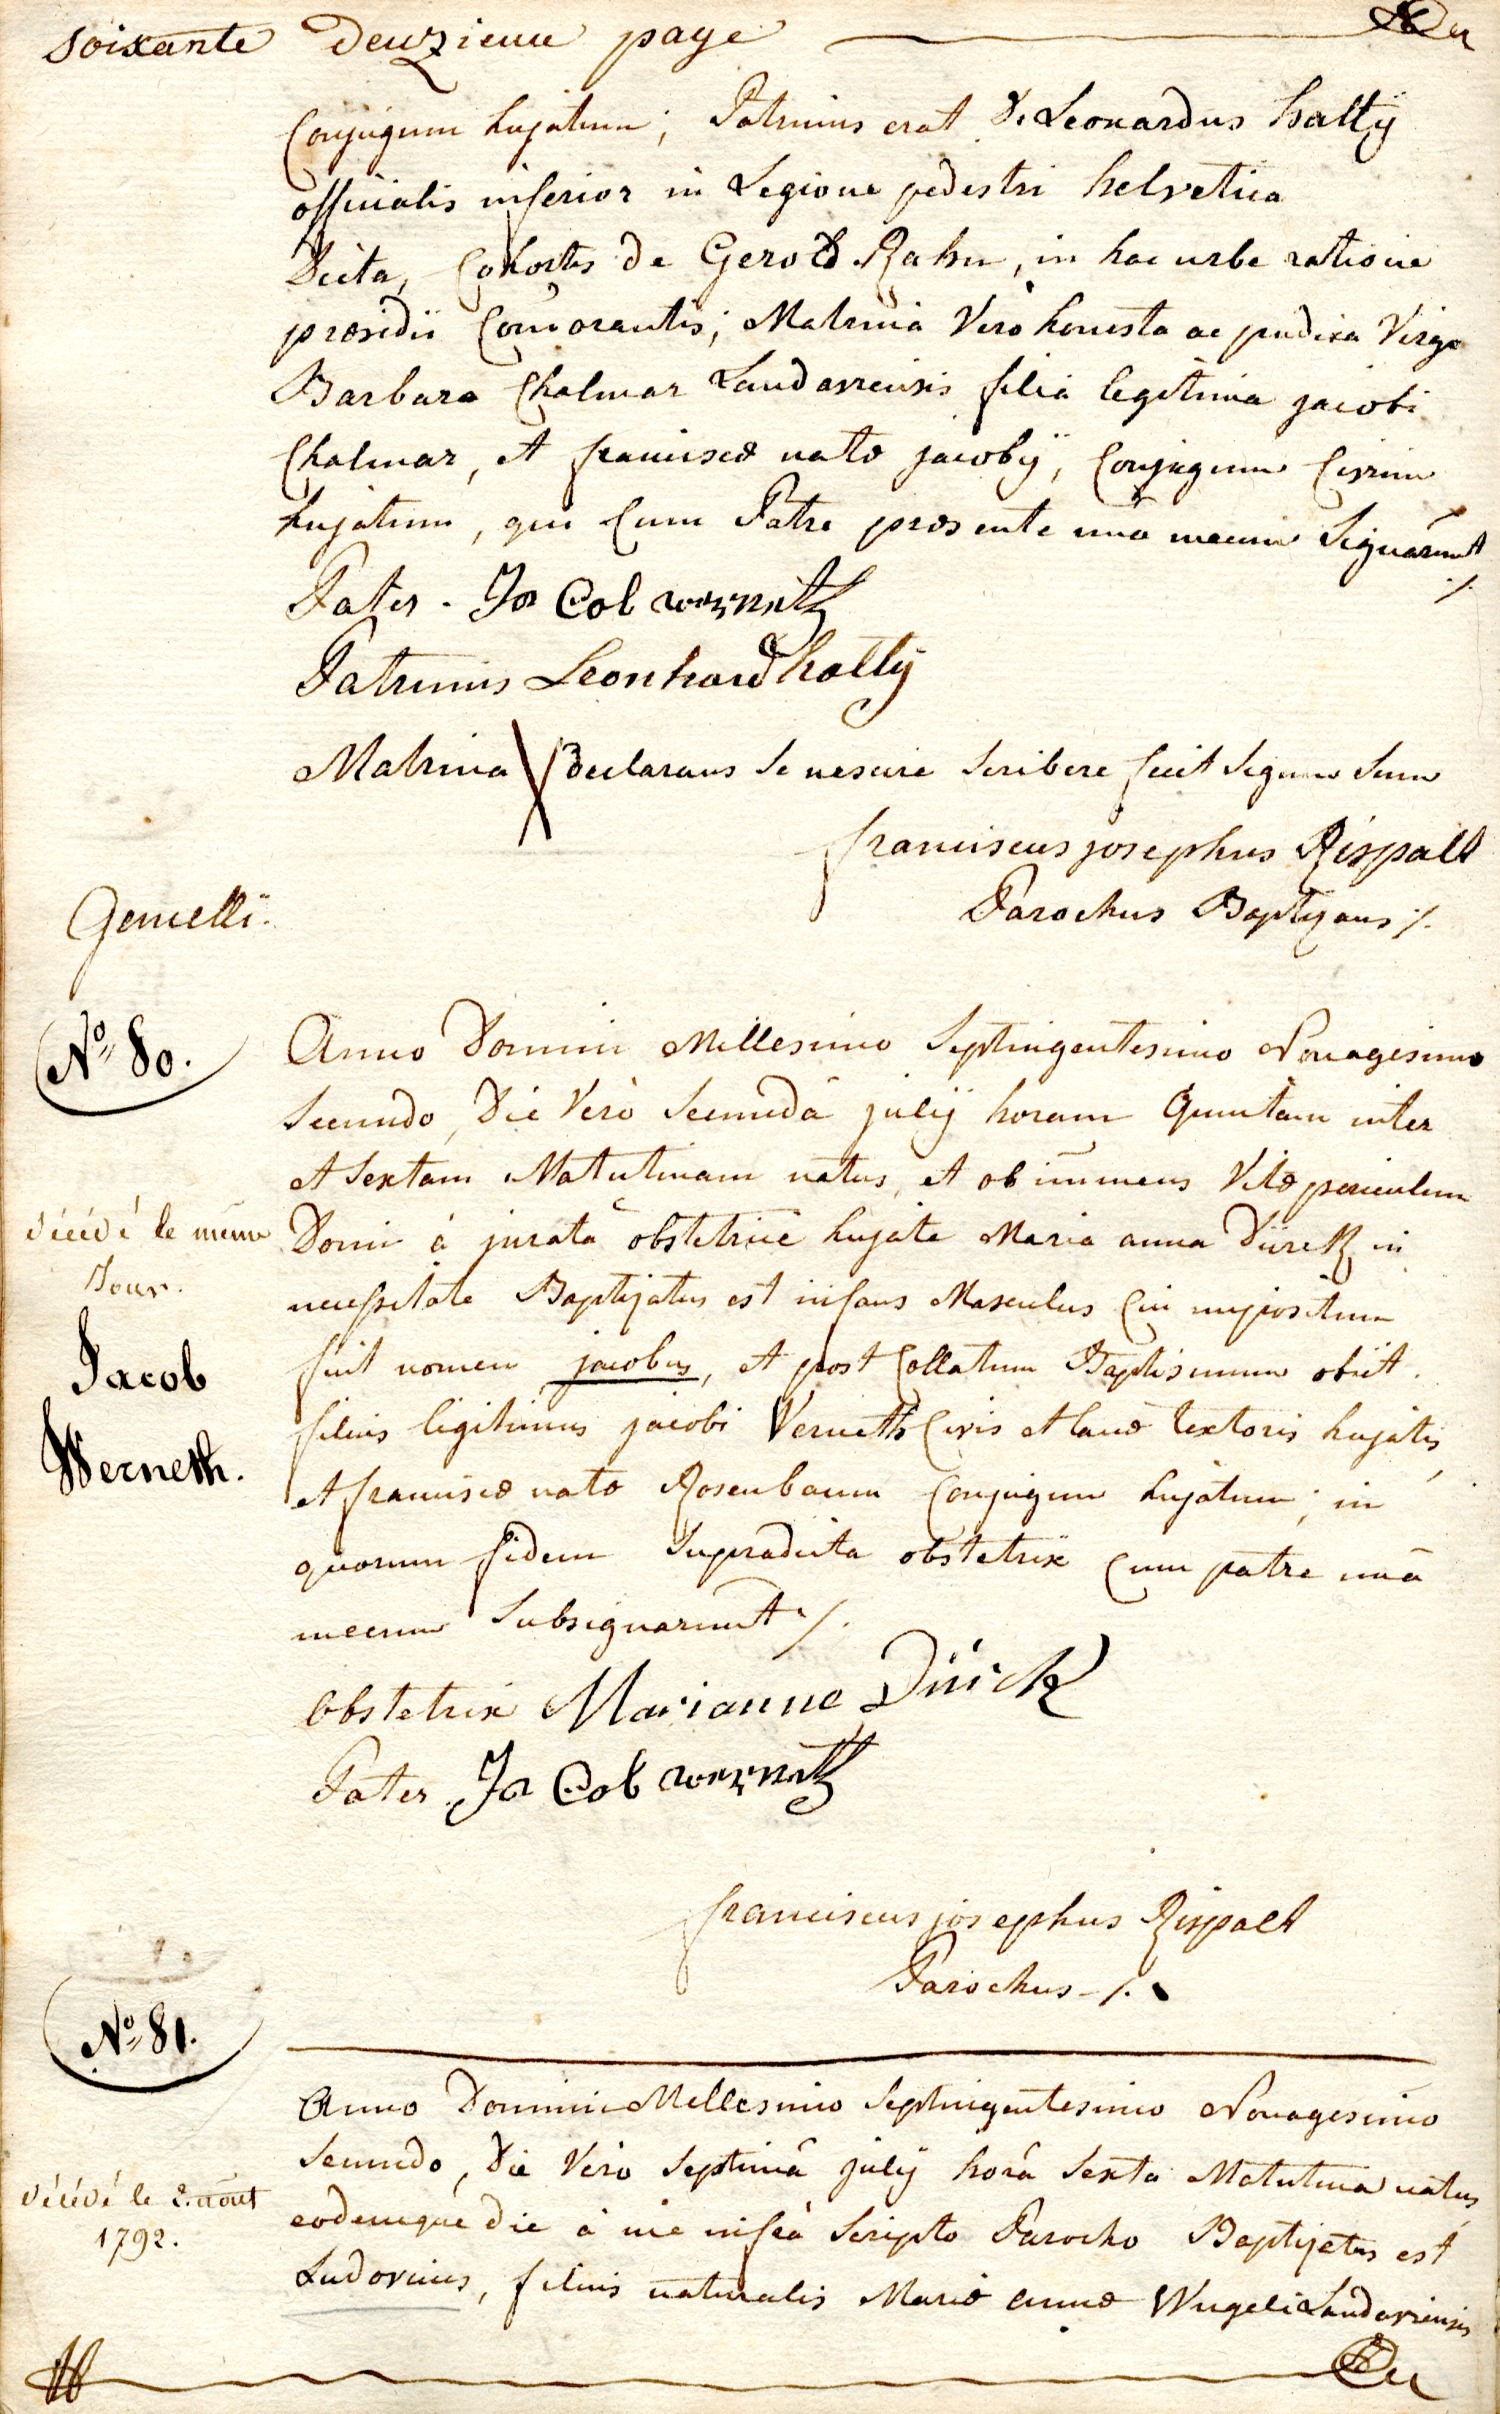 soixante deuzieme page
Conjugum hujatum; Patrinus erat D. Leonardus halty
officialis inferior in Legione pedestri helvetica
Dicta, Cohortis de Gerold Rahn, in hac urbe ratione
præsidii Com̄orantis; Matrina Verò honesta ac pudica Virgo
Barbara Chalmar Landaviensis filia legitima jacobi
Chalmar, et franciscæ natæ jacobÿ, Conjugum Civium
hujatum, qui Cum Patre præsente unà mecum Signârunt
Pater. Ja Cob wernetz
Patrinus Leonhard halty
Matrina X declarans se nescire scribere fecit signum suum
franciscus josephus Rispalt
Parochus Baptizans ./.
Gemelli.
Nº 80.
Anno Domini Millesimo Septingentesimo Nonagesimo
secundo, Die Verò secundâ julÿ horam Quintam inter
et sextam Matutinam natus, et ob im̄inens Vitæ periculum
décédé le même
Jour.
Domi à juratâ obstetrice hujate Maria anna Dürck in
necessitate Baptizatus est infans Masculus Cui impositum
Jacob
Werneth.
fuit nomen jacobus, et post Collatum Baptismum obiit.
filius legitimus jacobi Verneth Civis et lanæ textoris hujatis,
et franciscæ natæ Rosenbaum Conjugum hujatum; in
quorum fidem supradicta obstetrix Cum patre unâ
mecum subsignarunt ./.
obstetrix Marianne Dürck
Pater Ja Cob wernetz
franciscus josephus Rispalt
Parochus ./.
Nº 81.
Anno Domini Millesimo Septingentesimo Nonagesimo
secundo, Die Verò Septimâ julÿ horâ sexta Matutina natus,
décédé le 2. août
1792.
eodemque die à me infra scripto Parocho Baptizatus est
Ludovicus, filius naturalis Mariæ annæ Wugeli Landaviensis